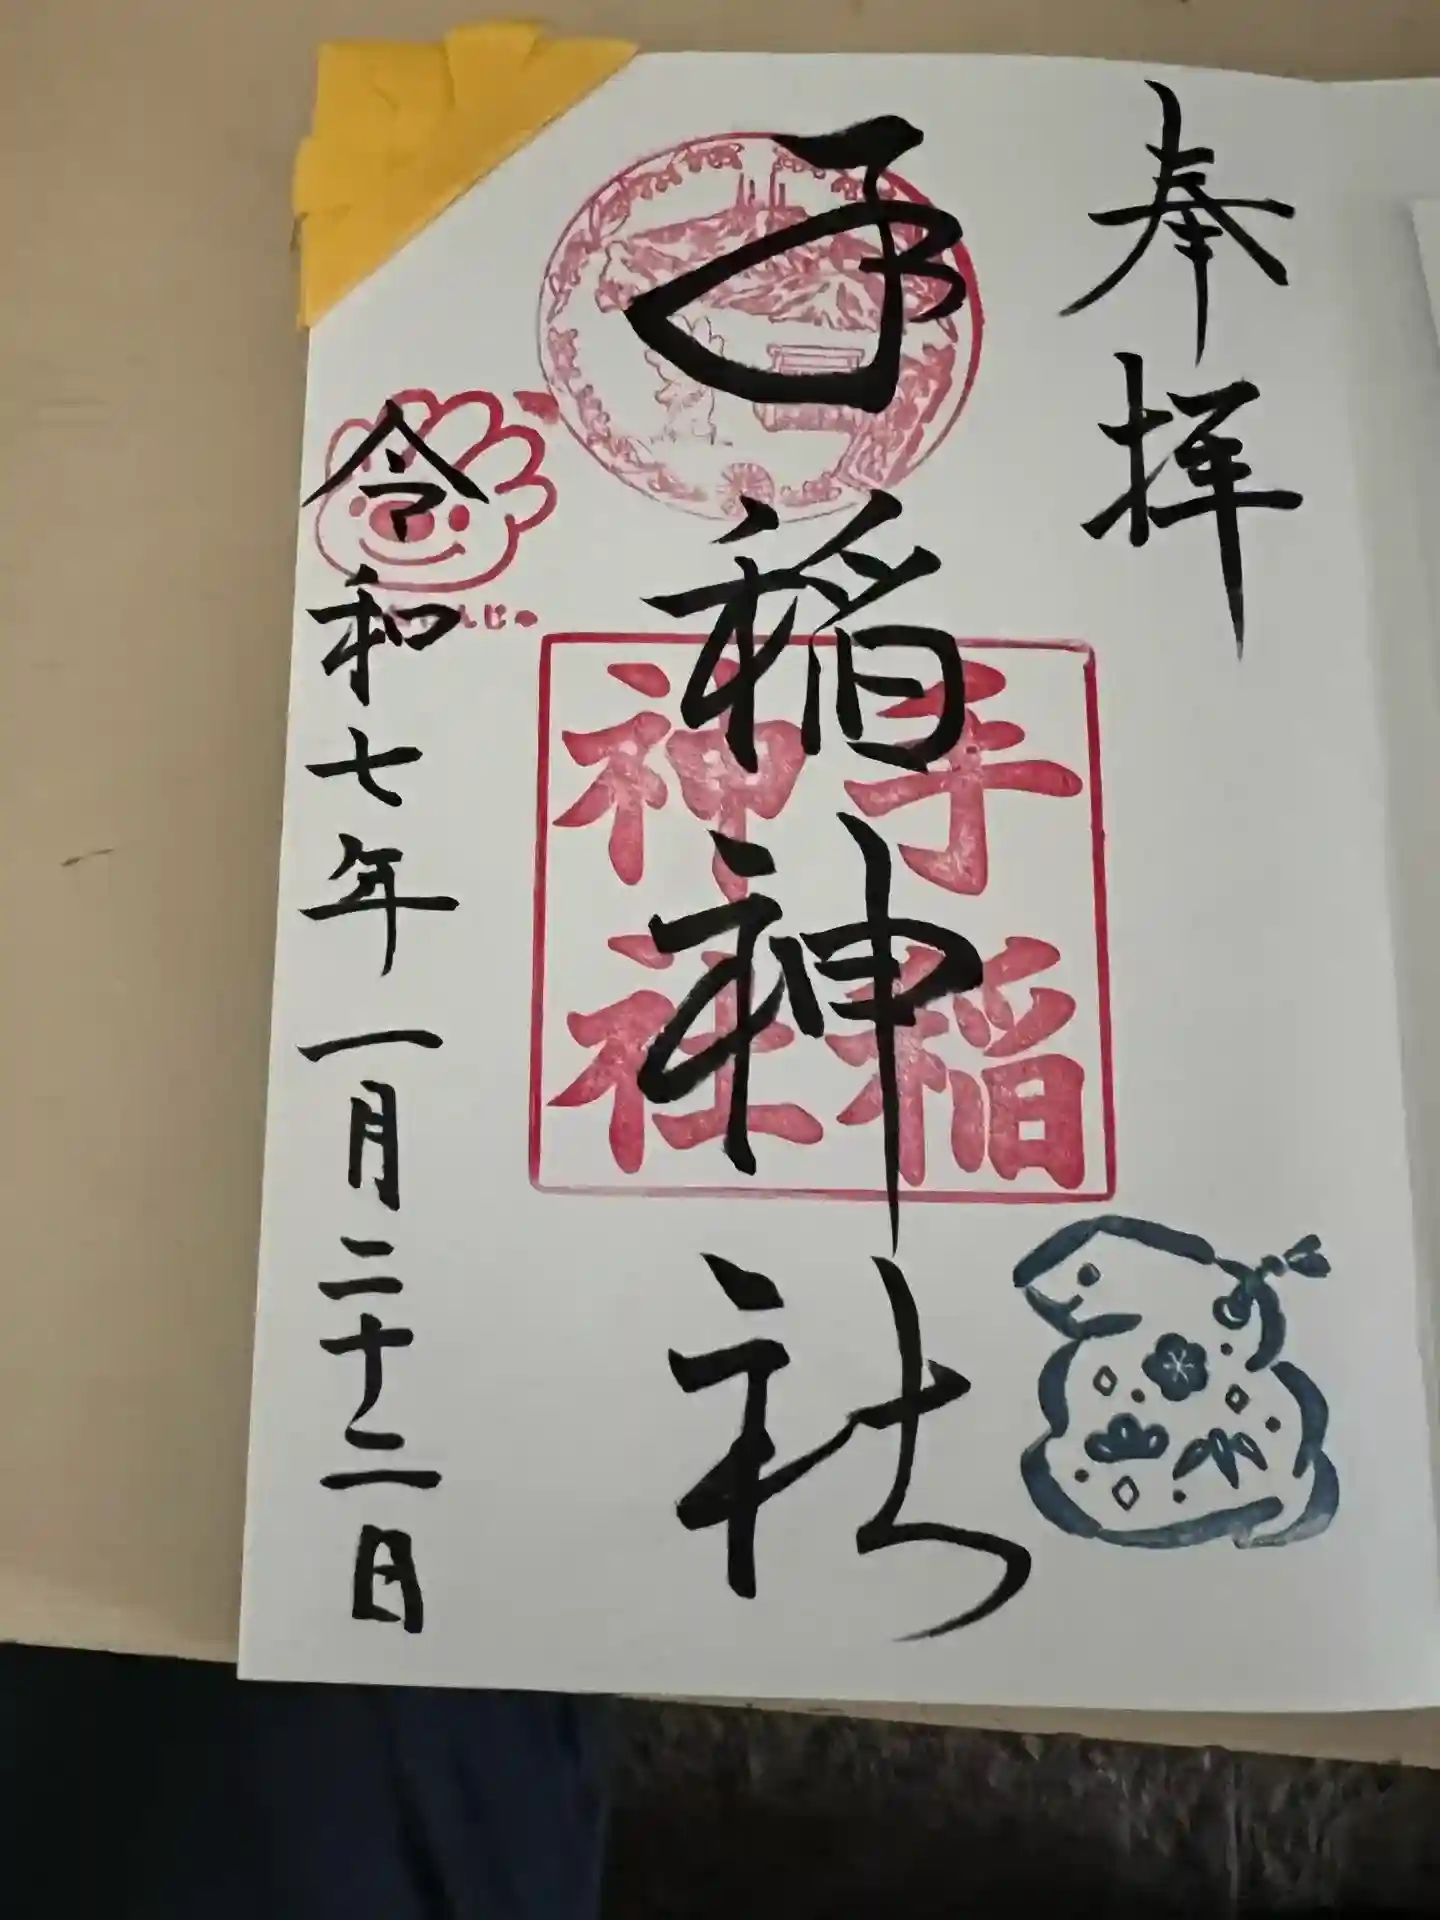 奉拝
手稲神社
手稲
神社
令和七年一月二十二日